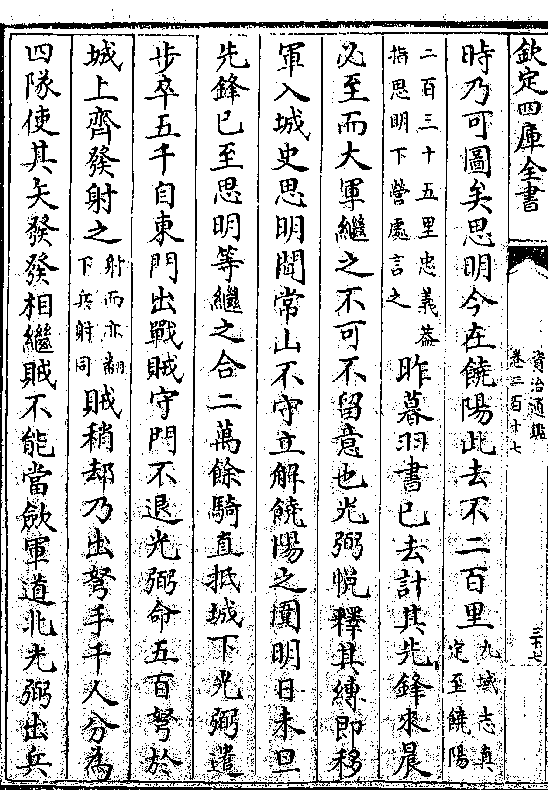 欽定四庫全書
資治通鑑
卷二百十七
三十七
時乃可圖矣思明今在饒陽此去不二百里九域志真定至饒陽
二百三十五里忠義蓋指思明下營處言之昨暮羽書已去計其先鋒來晨
必至而大軍繼之不可不留意也光弼悅釋其縛即移
軍入城史思明聞常山不守立解饒陽之圍明日未旦
先鋒已至思明等繼之合二萬餘騎直抵城下光弼遣
步卒五千自東門出戰賊守門不退光弼命五百弩於
城上齊發射之射而亦翻下射同賊稍却乃出弩手千人分為
四隊使其矢發發相繼賊不能當斂軍道北光弼出兵